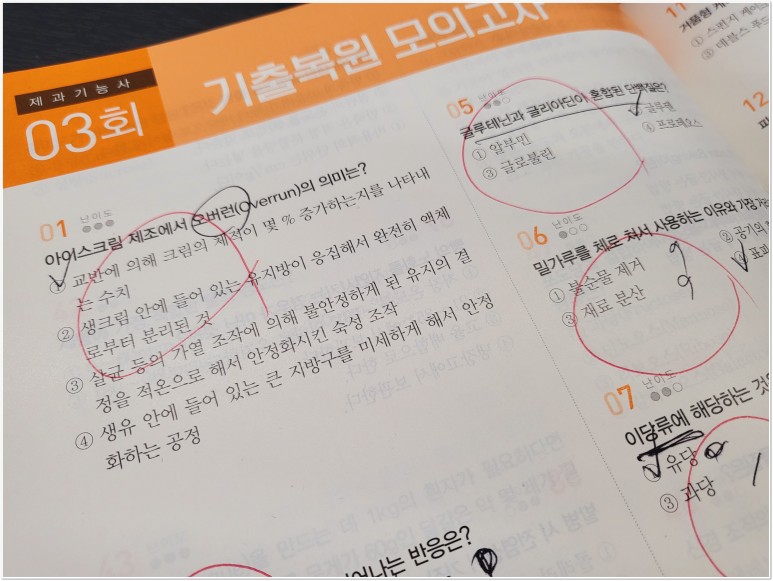 제과기능사
03회
기출복원 모의고사
01 난이도
아이스크림 제조에서 오버런(Overrun)의 의미는?
① 교반에 의해 크림의 체적이 몇 % 증가하는지를 나타내
는 수치
② 생크림 안에 들어 있는 유지방이 응집해서 완전히 액체
로부터 분리된 것
③ 살균 등의 가열 조작에 의해 불안정하게 된 유지의 결
정을 적온으로 해서 안정화시킨 숙성 조작
④ 생유 안에 들어 있는 큰 지방구를 미세하게 해서 안정
화하는 공정
나는 반응은?
05 난이도
글루테닌과 글리아딘이 혼합된 단백질은?
① 알부민 글루텐
③ 글로불린 ④ 프로테오스
06 난이도
밀가루를 체로 쳐서 사용하는 이유와 가장
① 불순물 제거 ② 공기의
③ 재료 분산 표피
07 난이도
이당류에 해당하는 것은
유당
③ 과당
11
거품형
① 스펀지
③ 데블스 푸드
12